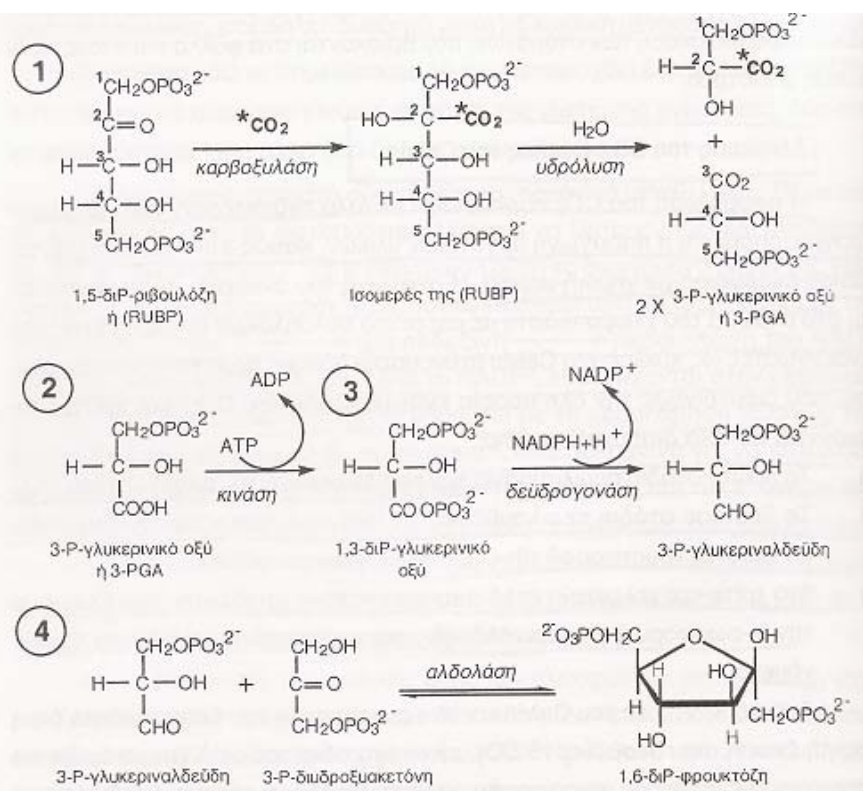 1
CH₂OPO₃²⁻
²C=O
H—³C—OH
H—C—OH
⁵CH₂OPO₃²⁻
1,5-διΡ-ριβουλόζη
ή (RUBP)
*CO₂
καρβοξυλάση
¹CH₂OPO₃²⁻
HO—²C—*CO₂
H—³C—OH
H—⁴C—OH
⁵CH₂OPO₃²⁻
Ισομερές της (RUBP)
H₂O
υδρόλυση
¹CH₂OPO₃²⁻
H—²C—*CO₂
OH
+
³CO₂
H—⁴C—OH
⁵CH₂OPO₃²⁻
2 X 3-Ρ-γλυκερινικό οξύ
ή 3-PGA
2
CH₂OPO₃²⁻
H—C—OH
COOH
3-Ρ-γλυκερινικό οξύ
ή 3-PGA
ADP
ATP
κινάση
3
CH₂OPO₃²⁻
H—C—OH
COOPO₃²⁻
1,3-διΡ-γλυκερινικό
οξύ
NADP⁺
NADPH+H⁺
δεϋδρογονάση
CH₂OPO₃²⁻
H—C—OH
CHO
3-Ρ-γλυκεριναλδεΰδη
4
CH₂OPO₃²⁻
H—C—OH
CHO
3-Ρ-γλυκεριναλδεΰδη
+
CH₂OH
C=O
CH₂OPO₃²⁻
3-Ρ-διυδροξυακετόνη
αλδολάση
²⁻O₃POH₂C O OH
H HO
H CH₂OPO₃²⁻
HO H
1,6-διΡ-φρουκτόζη